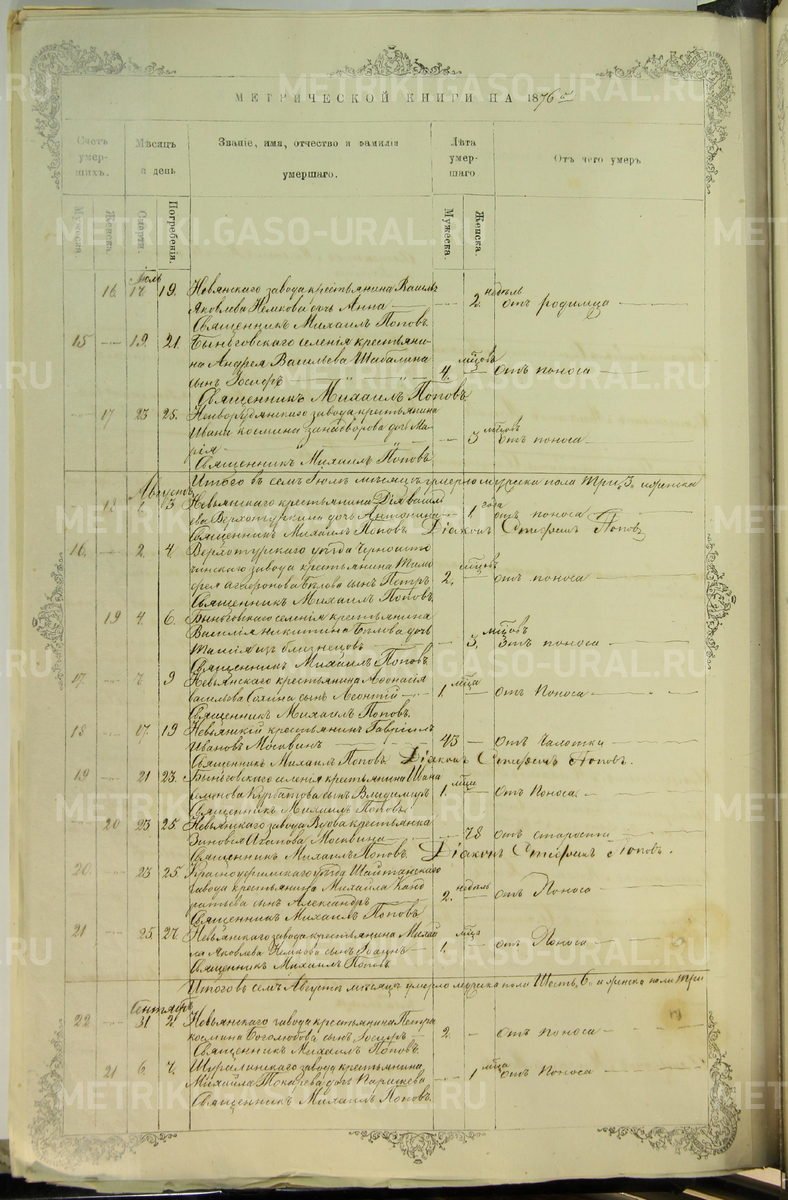 МЕТРИЧЕСКОЙ КНИГИ НА 1876 й
Счетъ умер-шихъ.
Мѣсяцъ и день
Званіе, имя, отчество и фамилія умершаго.
Лѣта умер-шаго
Отъ чего умеръ
Мужеска. Женска. Смерти. Погребенія. Мужеска. Женска.
Іюль
16. 17 19. Невянскаго завода крестьянина Василья 2. недѣль отъ родимца
Яковлева Немкова дочь Анна
Священникъ Михаилъ Поповъ.
15 19. 21. Быньговскаго селенія крестьяни-
на Андрея Васильева Шабалина 4. мѣсцовъ отъ поноса
сынъ
Священникъ Михаилъ Поповъ
17 23 25. завода крестьянина
Ивана Космина дочь Ма- 3 мѣсцовъ отъ поноса
рія
Священникъ Михаилъ Поповъ
Итого въ семъ Іюлѣ мѣсяцѣ умерло мужска пола три, 3. и женска
Августъ
18 1. 3 Невьянскаго крестьянина
Верхотуркина дочь Антонина 1 года отъ поноса
Священникъ Михаилъ Поповъ. Діаконъ Стефанъ Поповъ
16. 2. 4. Верхотурскаго уѣзда Черноисто-
чинскаго завода крестьянина Тимо-
фея Агафонова Бѣлова сынъ Петръ 2. мѣсцовъ отъ поноса
Священникъ Михаилъ Поповъ
19 4. 6. Быньговскаго селенія крестьянина
Василія Никитина Бѣлова дочь
изъ близнецовъ 3. мѣсцовъ отъ поноса
Священникъ Михаилъ Поповъ.
17. 7. 9 Невьянскаго крестьянина Афонасія
Васильева сынъ Леонтій 1. мѣсца отъ Поноса
Священникъ Михаилъ Поповъ.
18 17. 19 Невьянскій крестьянинъ Гаврилъ
Ивановъ Москвинъ 45 отъ Чахотки
Священникъ Михаилъ Поповъ. Діаконъ Стефанъ Поповъ.
19 21 23. Быньговскаго селенія крестьянина Ивана
Семенова Курбатова сынъ Владимиръ 1. мѣсца отъ Поноса
Священникъ Михаилъ Поповъ.
20 23 25. Невьянскаго завода Вдова крестьянка
Зиновія Агапова Москвина 78 отъ старости
Священникъ Михаилъ Поповъ. Діаконъ Стефанъ Поповъ.
20. 23 25 Красноуфимскаго уѣзда Шайтанскаго
завода крестьянина Михаила Конд-
ратьева сынъ Александръ 2. недѣль отъ Поноса
Священникъ Михаилъ Поповъ
21 25. 27. Невьянскаго завода крестьянина Михай-
ла Яковлева Немкова сынъ Іоаннъ 1. мѣсца отъ Поноса
Священникъ Михаилъ Поповъ
Итого въ семъ Августѣ мѣсяцѣ умерло мужска пола Шесть, 6. и женска пола три
Сентябрь
22 31 2 Невьянскаго завода крестьянина Петра
Космина Боголюбова сынъ 2. отъ Поноса
Священникъ Михаилъ Поповъ.
21 6. 7. Шуралинскаго завода крестьянина
Михаила Токарева дочь 1 мѣсца отъ Поноса
Священникъ Михаилъ Поповъ.
METRIKI.GASO-URAL.RU